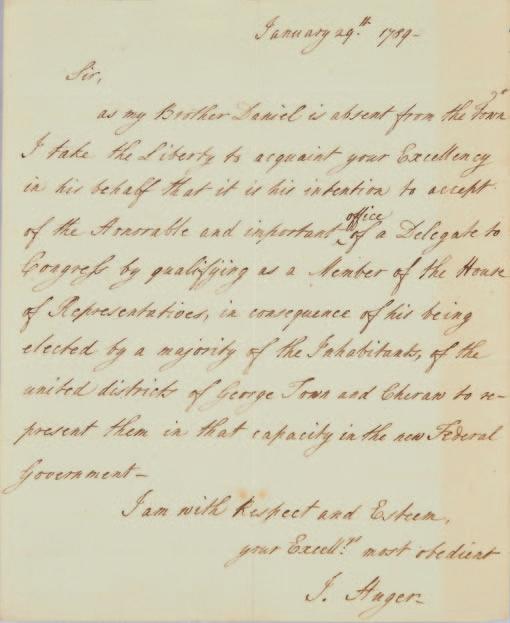 January 29.th 1789-
Sir,
as my Brother Daniel is absent from the Town
I take the Liberty to acquaint your Excellency
in his behalf that it is his intention to accept
office
of the Honorable and important ‸ of a Delegate to
Congress by qualifying as a Member of the House
of Representatives, in consequence of his being
elected by a majority of the Inhabitants, of the
united districts of George Town and Cheraw to re-
present them in that capacity in the new Federal
Government-
I am with Respect and Esteem,
your Excell.ys most obedient
J. Huger-